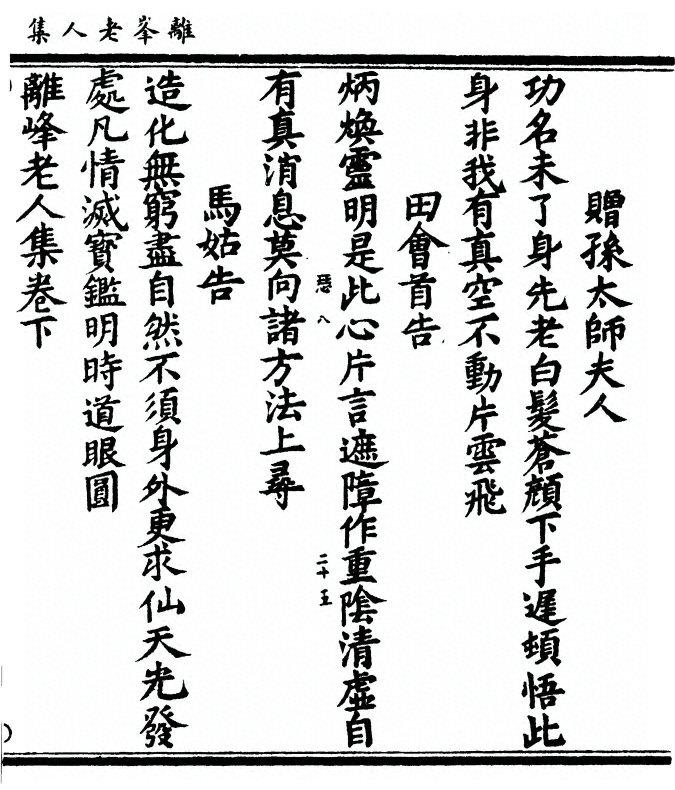 離峯老人集
贈孫太師夫人
功名未了身先老白髮蒼顏下手遲頓悟此
身非我有真空不動片雲飛
田會首告
炳煥靈明是此心片言遮障作重陰清虛自
惡八
二十五
有真消息莫向諸方法上尋
馬姑告
造化無窮盡自然不須身外更求仙天光發
處凡情滅寶鑑明時道眼圓
離峰老人集卷下